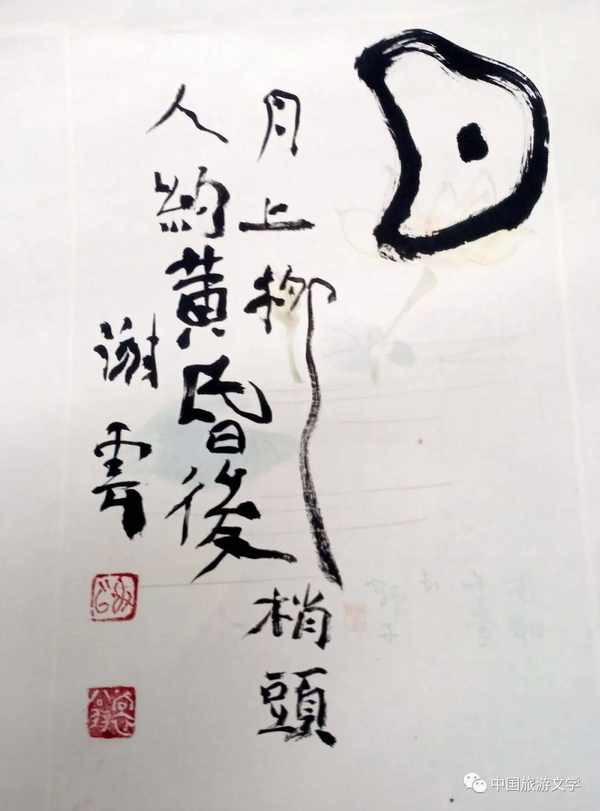 月上柳梢頭
人約黄昏後
謝雲
中国旅游文学